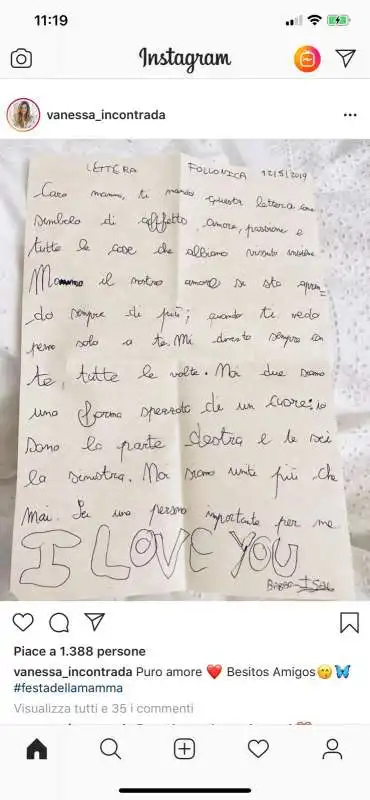 11:19
Instagram
vanessa_incontrada
LETTERA FOLLONICA 12/5/2019
Cara mamma, ti mando questa lettera come
simbolo di afffetto amore, passione e
tutte le cose che abbiamo vissuto insieme
Mamma il nostro amore si sta
do sempre di più; quando ti vedo
penso solo a te. Mi diverto sempre con
te, tutte le volte. Noi due siamo
una forma spezzata di un cuore; io
sono la parte destra e te sei
la sinistra. Noi siamo uniti più che
mai. Sei una persona importante per me
I LOVE YOU
Piace a 1.388 persone
vanessa_incontrada Puro amore ❤️ Besitos Amigos😙🦋
#festadellamamma
Visualizza tutti e 35 i commenti